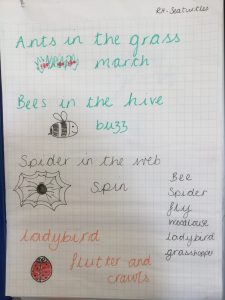 RH-Seaturtles
Ants in the grass
march
Bees in the hive
buzz
Spider in the web
Spin
Bee
Spider
fly
woodlouse
ladybird
grasshopper
ladybird
flutter and
crawls